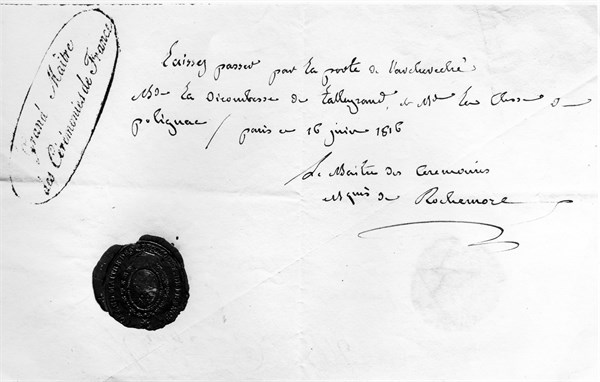 Grand Maître
des Cérémonies de France
Laissez passer par la porte de l'archeveché
Mde La Vicomtesse de Talleyrand, & Md La Ctesse de
polignac / paris ce 16 juin 1816
Le Maitre des Ceremonies
Mquis de Rochemore